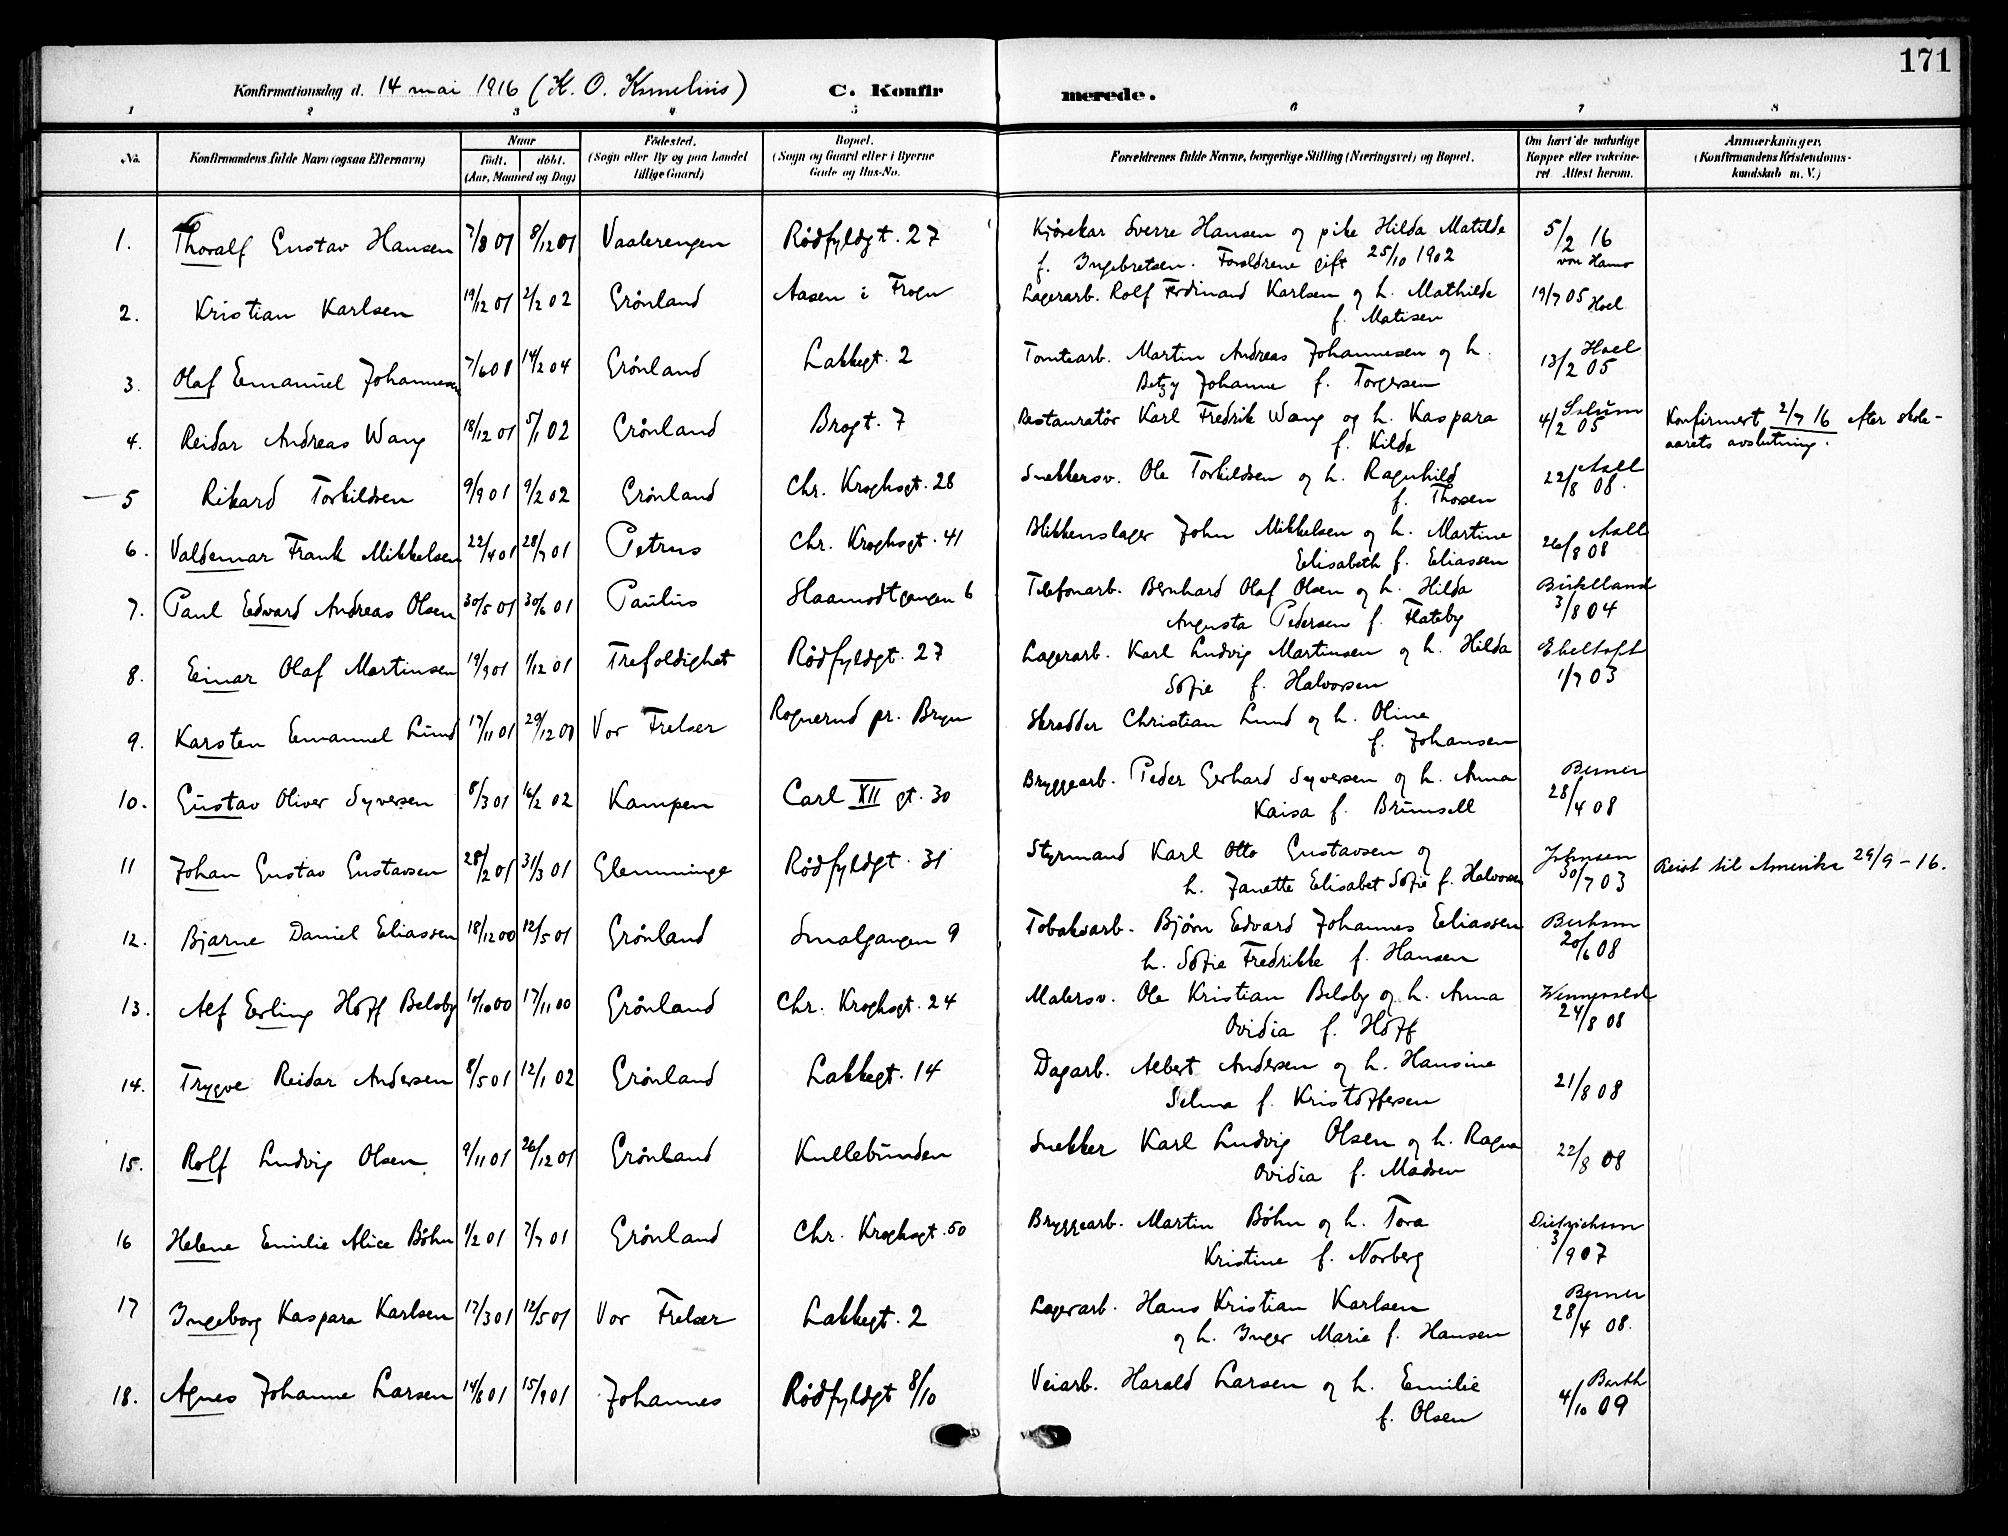 171
Konfirmationsdag d. 14 mai 1916 (K. O. Kornelius) C. Konfirmerede.
1 2 3 4 5 6 7 8
No. Konfirmandens fulde Navn (ogsaa Efternavn) Naar født. døbt. (Aar, Maaned og Dag) Fødested. (Sogn eller By og paa Landet tillige Gaard) Bopæl. (Sogn og Gaard eller i Byerne Gade og Hus-No. Forældrenes fulde Navne, borgerlige Stilling (Næringsvei) og Bopæl. Om havt de naturlige Kopper eller vakcineret. Attest herom. Anmærkninger. (Konfirmandens Kristendomskundskab m. V.)
1. Thoralf Gustav Hansen 7/8 01 8/12 01 Vaalerengen Rødfyldgt. 27 Kjørekar Sverre Hansen og pike Hilda Matilde 5/2 16
f. Ingebretsen. Forældrene gift 25/10 1902
2. Kristian Karlsen 19/12 01 2/2 02 Grønland Aasen i Frogn Lagerarb. Rolf Ferdinand Karlsen og h. Mathilde 19/7 05 Hoel
f. Matisen
3. Olaf Emanuel Johannesen 7/6 01 14/2 04 Grønland Lakkegt. 2 Tomtearb. Martin Andreas Johannesen og h. Hoel 13/2 05
Betzy Johanne f. Torgersen
4. Reidar Andreas Wang 18/12 01 5/1 02 Grønland Brogt. 7 Restauratør Karl Fredrik Wang og h. Kaspara 4/2 05 Konfirmert 2/7 16 efter skole-
f. Kilde aarets avslutning.
5 Rikard Torkildsen 9/9 01 9/2 02 Grønland Chr. Kroghsgt. 28 Snekkersv. Ole Torkildsen og h. Ragnhild Aall 22/8 08.
f. Thosen
6. Valdemar Frank Mikkelsen 22/4 01 28/7 01 Petrus Chr. Kroghsgt. 41 Blikkenslager John Mikkelsen og h. Martine Aall 26/8 08
Elisabeth f. Eliassen
7. Paul Edvard Andreas Olsen 30/5 01 30/6 01 Paulus Slaamotgangen 6 Telefonarb. Bernhard Olaf Olsen og h. Hilda Birkelland 3/8 04
Augusta Pedersen f. Flateby
8. Einar Olaf Martinsen 19/9 01 1/12 01 Trefoldighet Rødfyldgt. 27 Lagerarb. Karl Ludvig Martinsen og h. Hilda Ebeltoft 1/7 03
Sofie f. Halvorsen
9. Karsten Emanuel Lund 17/11 01 29/12 01 Vor Frelser Rognerud pr. Bryn Skrædder Christian Lund og h. Oline
f. Johansen
10. Gustav Oliver Syversen 8/3 01 16/2 02 Kampen Carl XII gt. 30 Bryggearb. Peder Gerhard Syversen og h. Anna Berner 28/4 08
Kaisa f. Brunsell
11 Johan Gustav Gustavsen 28/2 01 31/3 01 Glemminge Rødfyldgt. 31 Styrmand Karl Otto Gustavsen og Johnsen 30/7 03 Reist til Amerika 29/9 - 16.
h. Janette Elisabet Sofie f. Halvorsen
12. Bjarne Daniel Eliassen 18/12 00 12/5 01 Grønland Smalgangen 9 Tobaksarb. Bjørn Edvard Johannes Eliassen 20/6 08
h. Sofie Fredrikke f. Hansen
13. Alf Erling Hoff Belsby 10/10 00 17/11 00 Grønland Chr. Kroghsgt. 24 Malersv. Ole Kristian Belsby og h. Anna 24/8 08
Ovidia f. Hoff
14. Trygve Reidar Andersen 8/5 01 12/1 02 Grønland Lakkegt. 14 Dagarb. Albert Andersen og h. Hansine 21/8 08
Selma f. Kristoffersen
15. Rolf Ludvig Olsen 9/11 01 26/12 01 Grønland Kullebunden Snekker Karl Ludvig Olsen og h. Ragna 22/8 08
Ovidia f. Madsen
16 Helene Emilie Alice Bøhn 1/2 01 7/7 01 Grønland Chr. Kroghsgt. 50 Bryggearb. Martin Bøhn og h. Tora Dietrichson 3/9 07
Kristine f. Norberg
17 Ingeborg Kaspara Karlsen 17/3 01 12/5 01 Vor Frelser Lakkegt. 2 Lagerarb. Hans Kristian Karlsen Berner 28/4 08.
og h. Inger Marie f. Hansen
18. Agnes Johanne Larsen 14/8 01 15/9 01 Johannes Rødfyldgt 8/10 Veiarb. Harald Larsen og h. Emilie Barth 4/10 09
f. Olsen